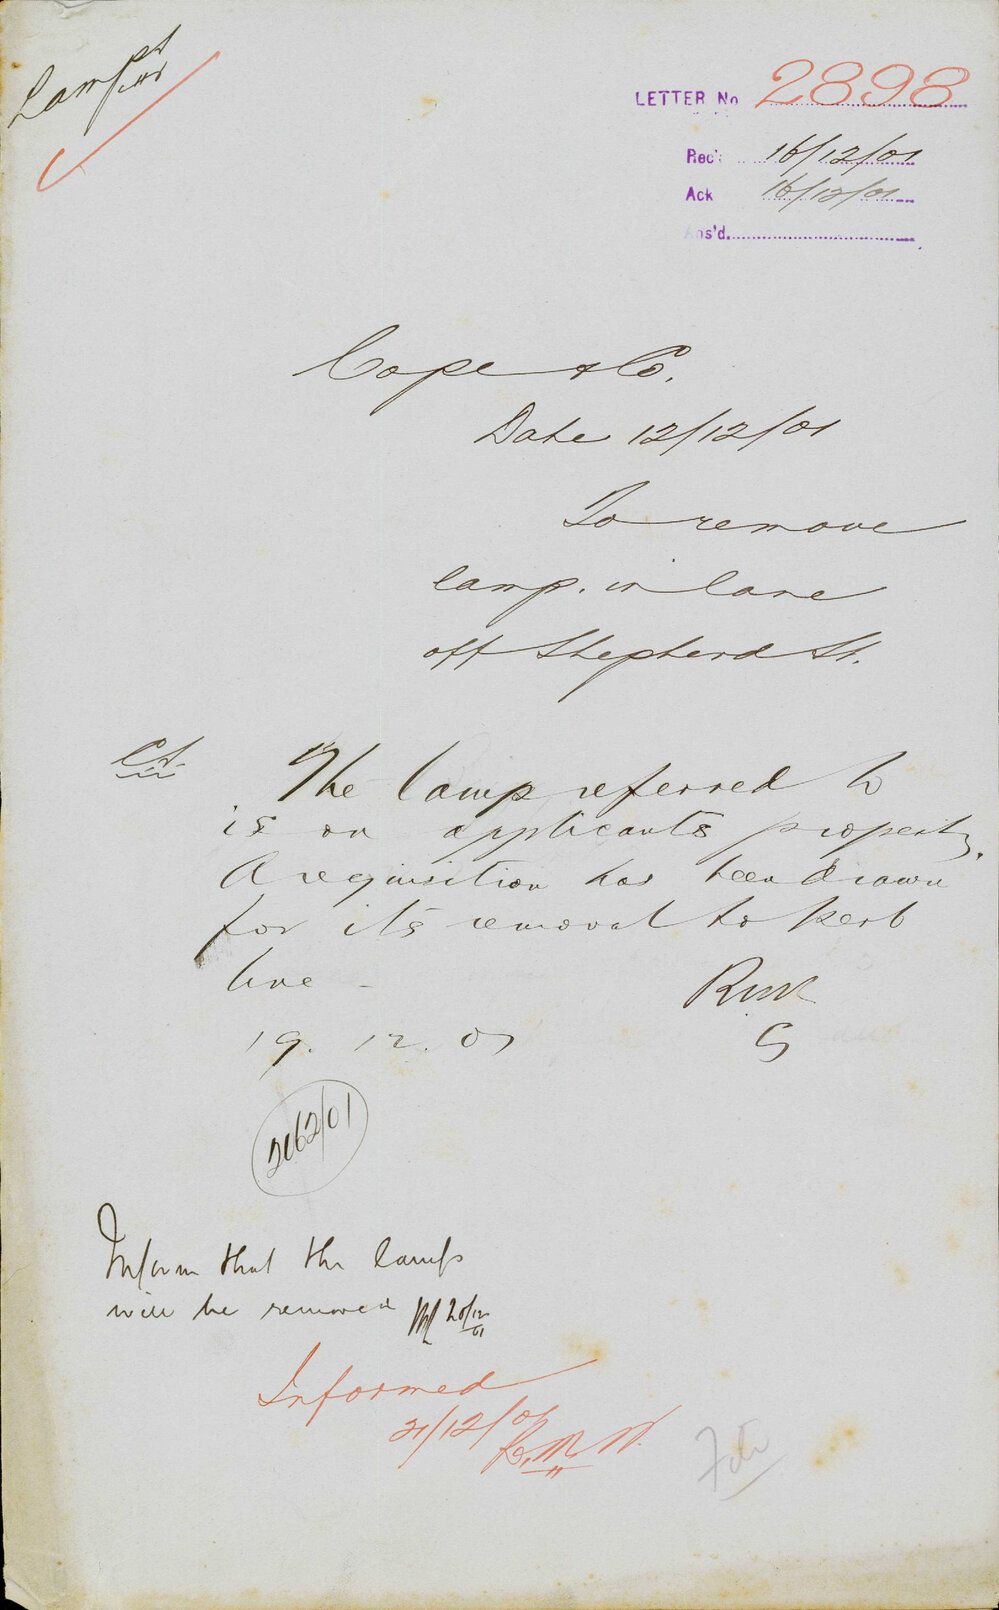 Lamps
LETTER No 2898
Rec'd 16/12/01
Ack 16/12/01
Ans'd.
Cope & Co.
Date 12/12/01
To remove
lamp. in lane
off Shepherd St.
The lamp referred to
is on applicants property.
A requisition has been drawn
for its removal to kerb
line -
19. 12. 01
2062/01
Inform that the lamp
will be removed 20/12/01
Informed
21/12/01
File